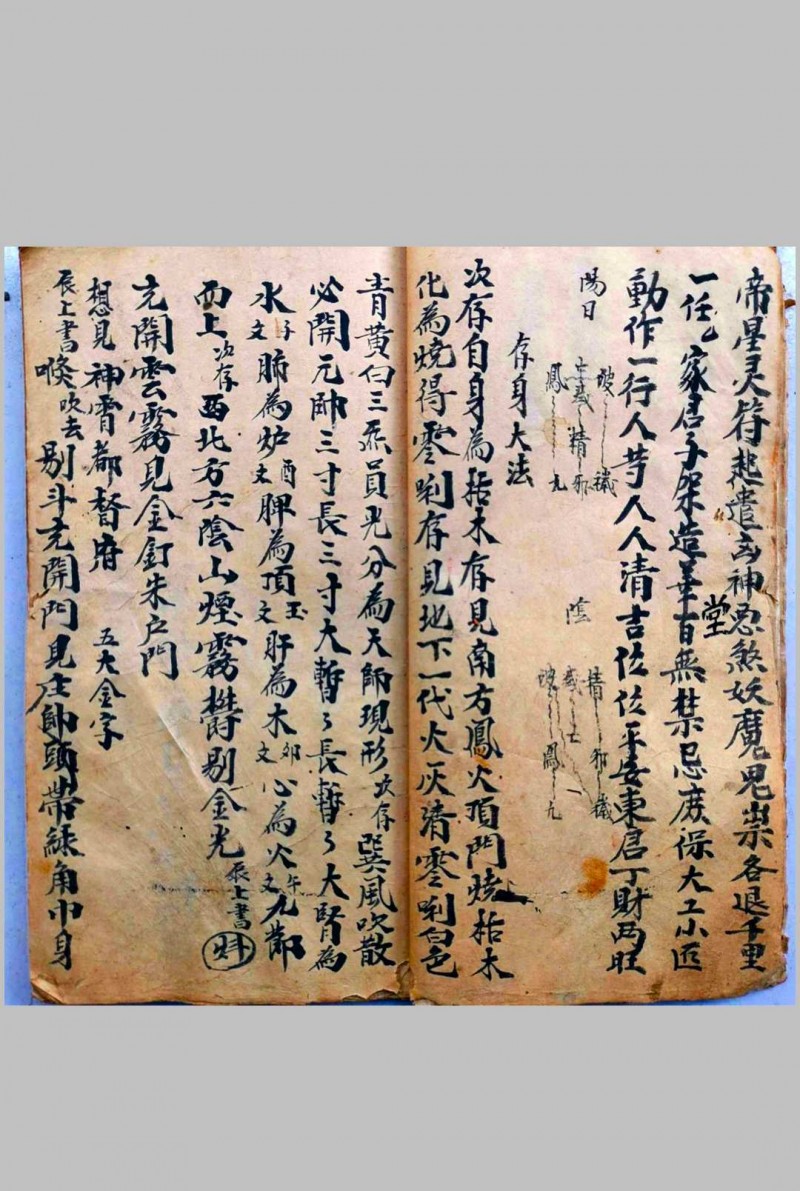 帝星灵符起遣出神恶煞妖魔鬼祟各退千里
一任 家君子架造華堂百無禁忌庶保大工小匠
動作一行人等人人清吉位位平安東君丁財两旺
陽日
精 邪
鳳 九
陰
精 邪
鳳 九
存身大法
次存自身為枯木存見南方鳳火頂門燒枯木
化為燒得零唎存見地下一代火灰清零唎白色
青黄白三炁員光分為天師現形次存巽風吹散
必開元帥三寸長三寸大暫々長暫々大腎為
水子文肺為炉酉文脾為頂玉文肝為木卯文心為火午文九鄒
而上次存西北方六陰山煙霧欝剔金光辰上書魁
充開雲霧見金釘朱户門
想見神霄都督府 五大金字
辰上書 喚吹去剔斗充開門見庄帥頭带綠角巾身